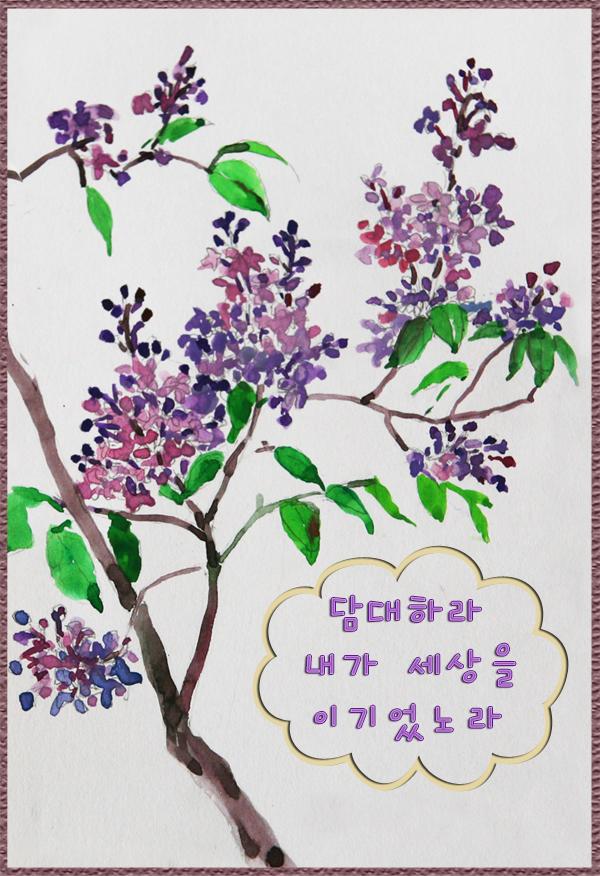 담대하라
내가 세상을
이기었노라